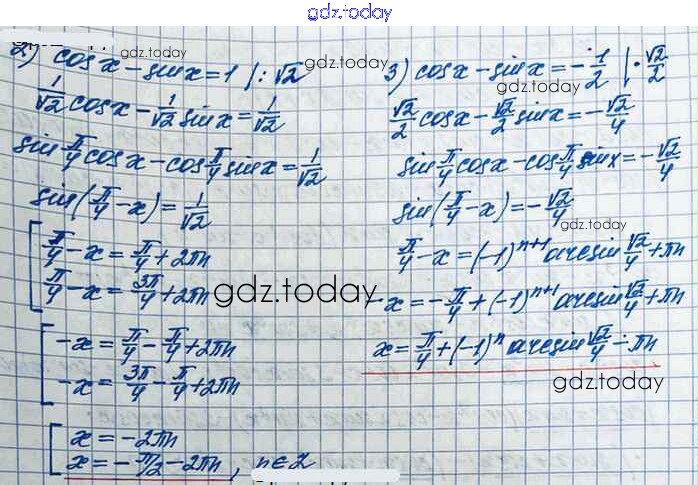 gdz.today
2) cos x − sin x = 1 |: √2
gdz.today
1/√2 cos x − 1/√2 sin x = 1/√2
sin π/4 cos x − cos π/4 sin x = 1/√2
sin(π/4 − x) = 1/√2
[ π/4 − x = π/4 + 2πn
π/4 − x = 3π/4 + 2πn
gdz.today
[ −x = π/4 − π/4 + 2πn
−x = 3π/4 − π/4 + 2πn
[ x = −2πn
x = −π/2 − 2πn, n∈Z
3) cos x − sin x = −1/2 | · √2/2
gdz.today
√2/2 cos x − √2/2 sin x = −√2/4
sin π/4 cos x − cos π/4 sin x = −√2/4
sin(π/4 − x) = −√2/4
gdz.today
π/4 − x = (−1)^{n+1} arcsin √2/4 + πn
−x = −π/4 + (−1)^{n+1} arcsin √2/4 + πn
x = π/4 + (−1)^n arcsin √2/4 − πn
gdz.today